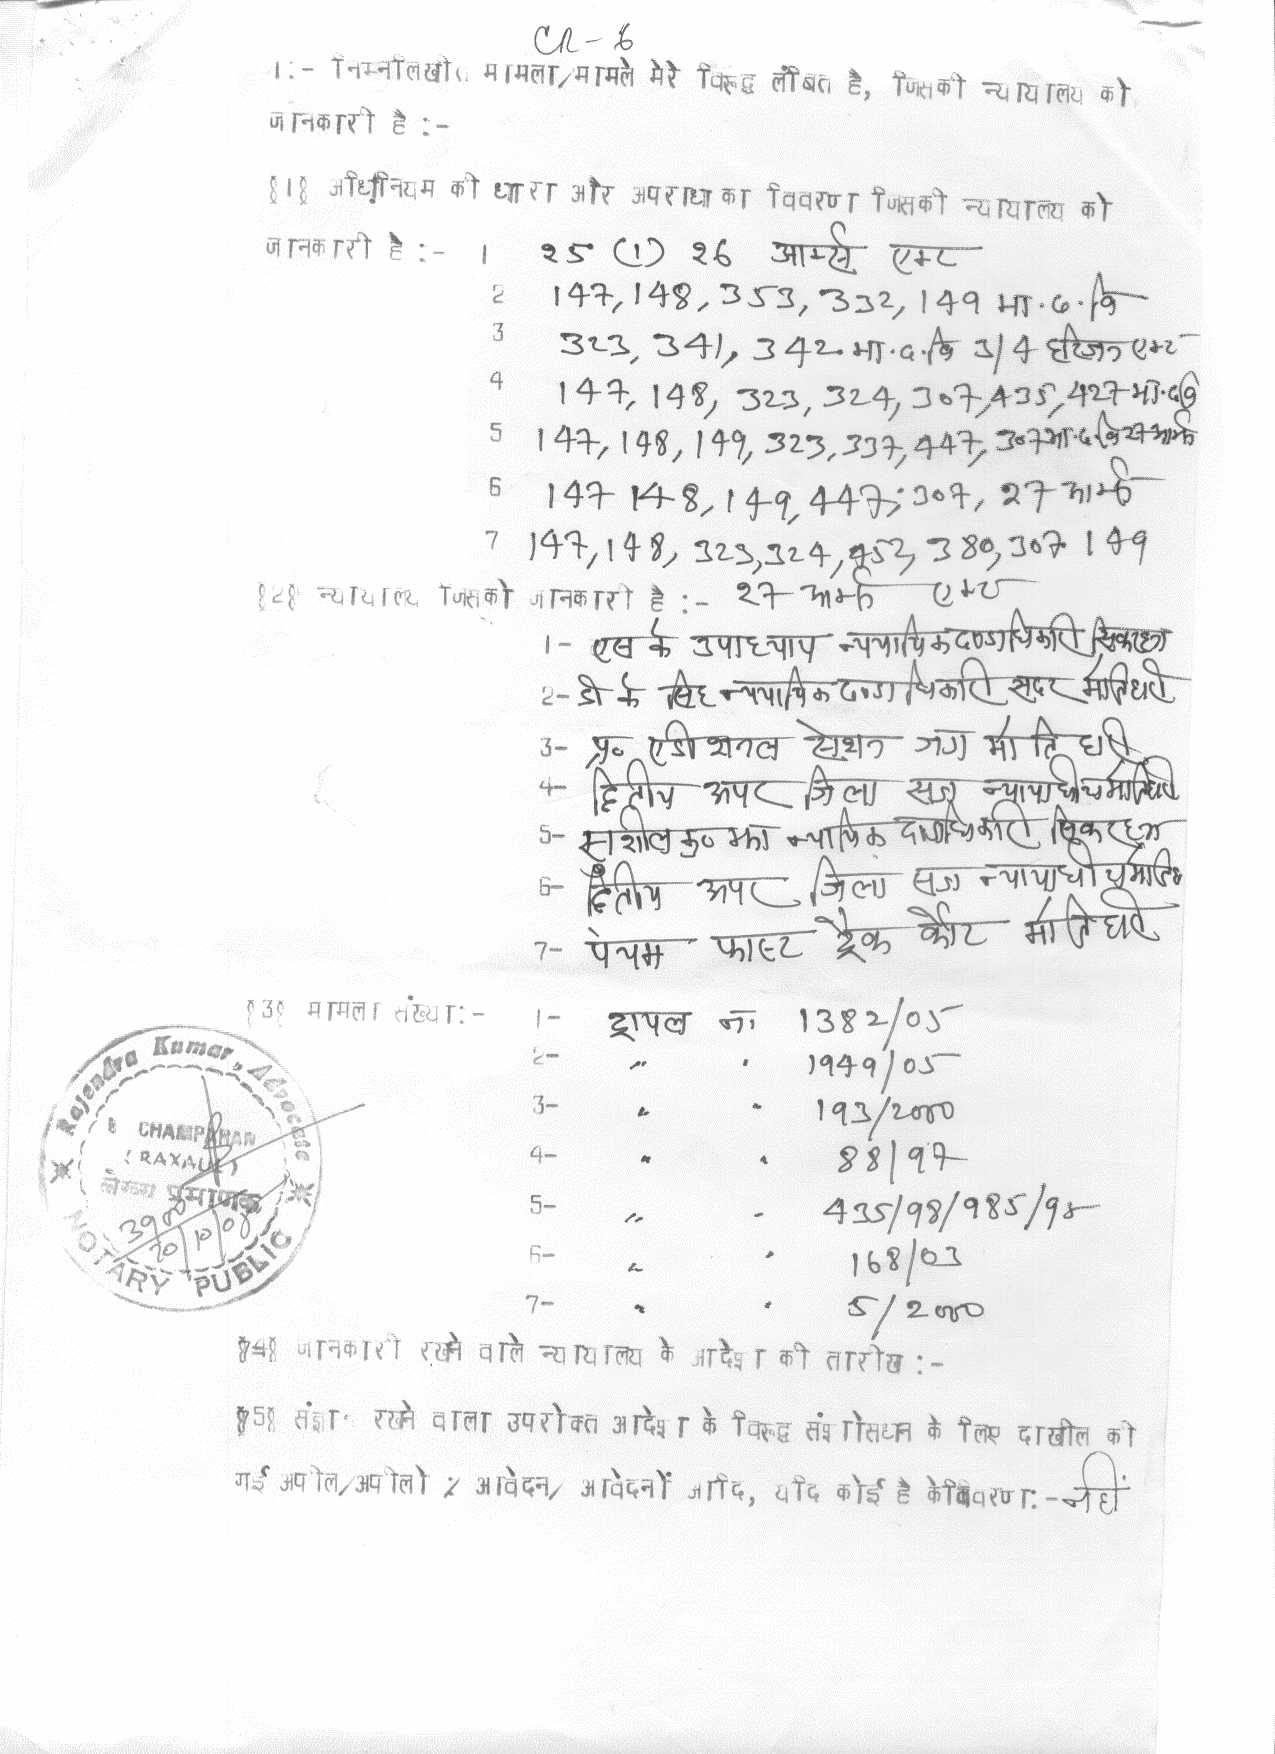 CR - 6
1:- निम्नलिखीत मामला/मामले मेरे विरूद्ध लंबित है, जिसकी न्यायालय को
जानकारी है :-
§1§ अधिनियम की धारा और अपराधा का विवरण जिसकी न्यायालय को
जानकारी है :- 1 २5 (1) २6 आर्म्स एक्ट
2 147, 148, 353, 332, 149 भा.द.वि
3 323, 341, 342 भा.द.वि 3/4 हरिजन एक्ट
4 147, 148, 323, 324, 307, 435, 427 भा.द.वि
5 147, 148, 149, 323, 337, 447, 307 भा.द.वि 27 आर्म्स
6 147 148, 149, 447, 307, 27 आर्म्स
7 147, 148, 323, 324, 452, 380, 307 149
§2§ न्यायालय जिसको जानकारी है :- २7 आर्म्स एक्ट
1- एस के उपाध्याय न्यायिक दण्डाधिकारी सिकरहना
2- डी के सिंह न्यायिक दण्डाधिकारी सदर मोतिहारी
3- प्र० एडीशनल सेशन जज मोतिहारी
4- द्वितीय अपर जिला सत्र न्यायाधीश मोतिहारी
5- सुशील कु० झा न्यायिक दण्डाधिकारी सिकरहना
6- द्वितीय अपर जिला सत्र न्यायाधीश मोतिहारी
7- पंचम फास्ट ट्रैक कोर्ट मोतिहारी
§3§ मामला संख्या:- 1- ट्रायल नं 1382/05
2- " " 1949/05
3- " " 193/2000
4- " " 88/97
5- " " 435/98/985/98
6- " " 168/03
7- " " 5/2000
Rajendra Kumar, Advocate
E CHAMPARAN
(RAXAUL)
लेख्य प्रमाणक
20/10/05
NOTARY PUBLIC
§4§ जानकारी रखने वाले न्यायालय के आदेश की तारीख :-
§5§ संज्ञा रखने वाला उपरोक्त आदेश के विरूद्ध संशोसधन के लिए दाखील की
गई अपील/अपीलो / आवेदन/ आवेदनों आदि, यदि कोई है के विवरण:- नहीं